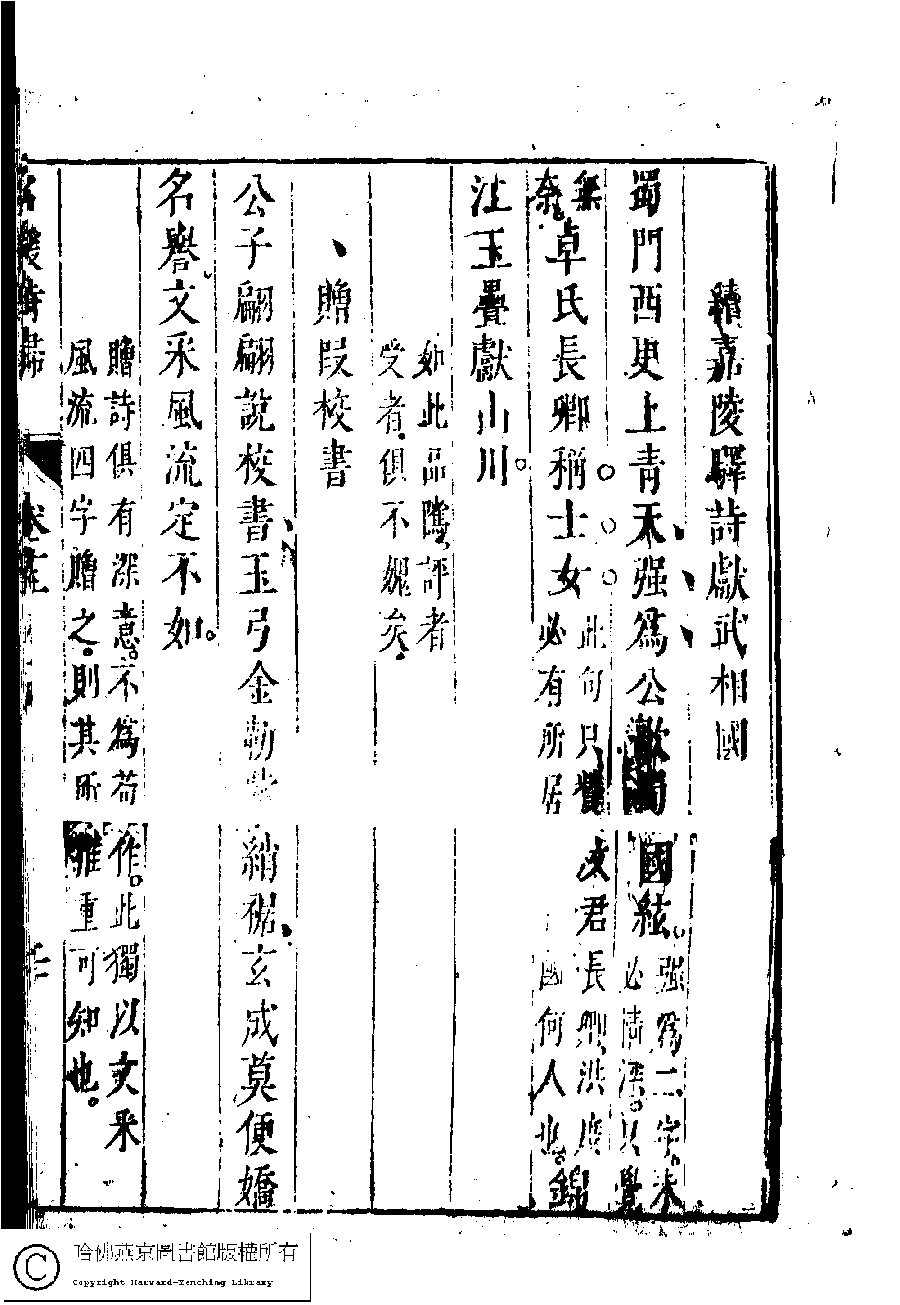 續嘉陵驛詩獻武相國
蜀門西更上青天强爲公歌蜀國絃。
强爲二字。未
必情深。只覺
無
奈
卓氏長卿稱士女
此句只贊文君長卿、洪度
必有所居 何人也。
錦
江玉壘獻山川。
如此品隲、評者
受者、俱不媿矣。
贈段校書
公子翩翩說校書玉弓金勒紫綃裾玄成莫便嬌
名譽文采風流定不如。
贈詩俱有深意。不爲苟作。此獨以文采
風流四字贈之。則其所推重可知也。
名媛詩歸 卷十三
哈佛燕京圖書館版權所有
Copyright Harvard-Yenching Library